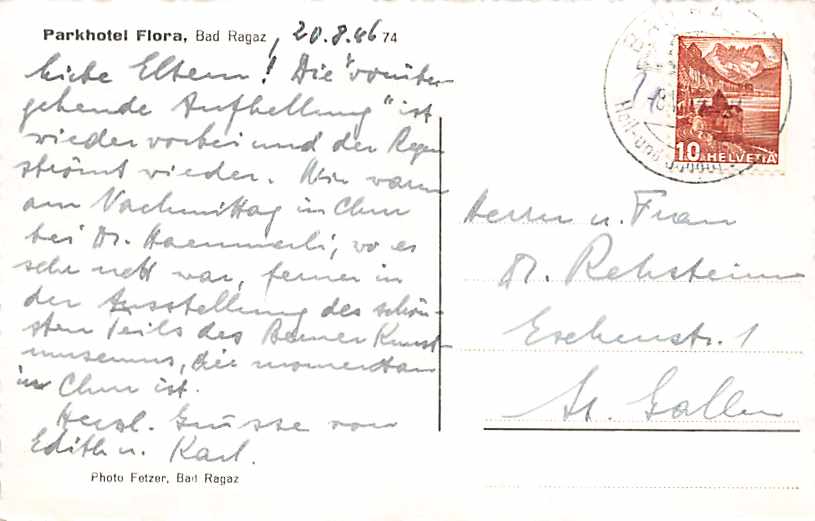 Parkhotel Flora, Bad Ragaz, 20.8.46 74
Liebe Eltern! Die "vorüber-
gehende Aufhellung" ist
wieder vorbei und der Regen
strömt wieder. Wir waren
am Nachmittag in Chur
bei Dr. Haemmerli, wo es
sehr nett war, ferner in
der Ausstellung des schön-
sten Teils des Berner Kunst-
museums, die momentan
in Chur ist.
Herzl. Grüsse von
Edith u. Karl.
Photo Fetzer, Bad Ragaz
BAD RAGAZ
10 HELVETIA
Herrn u. Frau
Dr. Rehsteiner
Eschenstr. 1
St. Gallen